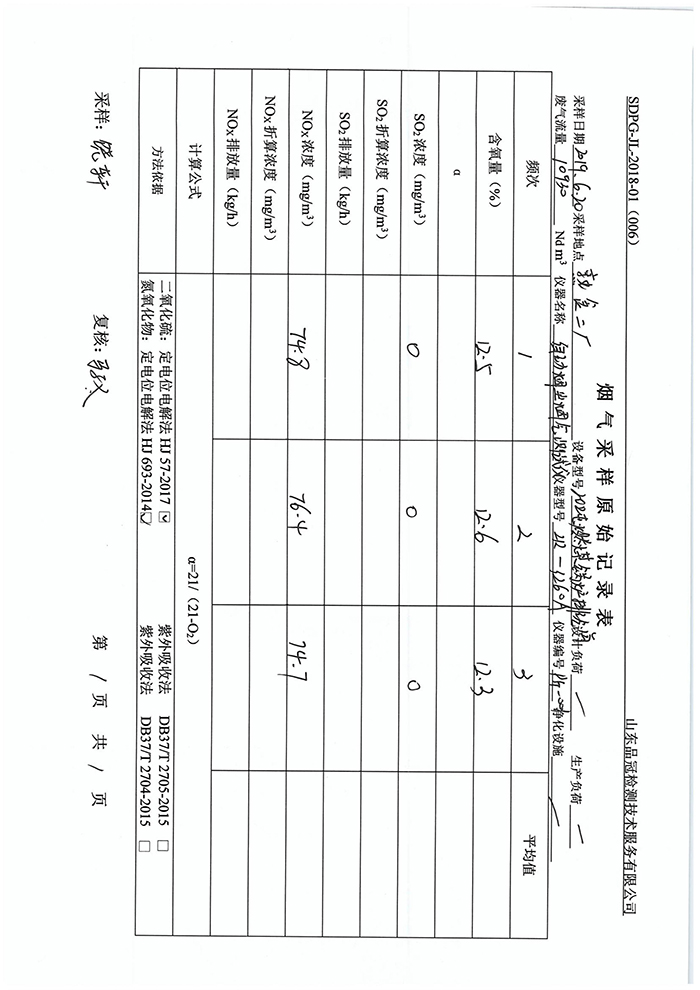 SDPG-JL-2018-01（006） 山东品冠检测技术服务有限公司
烟气采样原始记录表
采样日期 2019.6.20 采样地点 二厂 设备型号 设计负荷 — 生产负荷 —
废气流量 10930 Nd m³ 仪器名称 自动烟尘烟气 仪器型号 仪器编号 净化设施 —
频次 1 2 3 平均值
含氧量（%） 12.5 12.6 12.3
α
SO₂浓度（mg/m³） 0 0 0
SO₂折算浓度（mg/m³）
SO₂排放量（kg/h）
NOX浓度（mg/m³） 74.8 76.4 74.7
NOX折算浓度（mg/m³）
NOX排放量（kg/h）
计算公式 α=21/（21-O₂）
方法依据 二氧化硫：定电位电解法 HJ 57-2017 ☑ 紫外吸收法 DB37/T 2705-2015 □
氮氧化物：定电位电解法 HJ 693-2014 ☑ 紫外吸收法 DB37/T 2704-2015 □
采样： 复核： 第 1 页 共 1 页